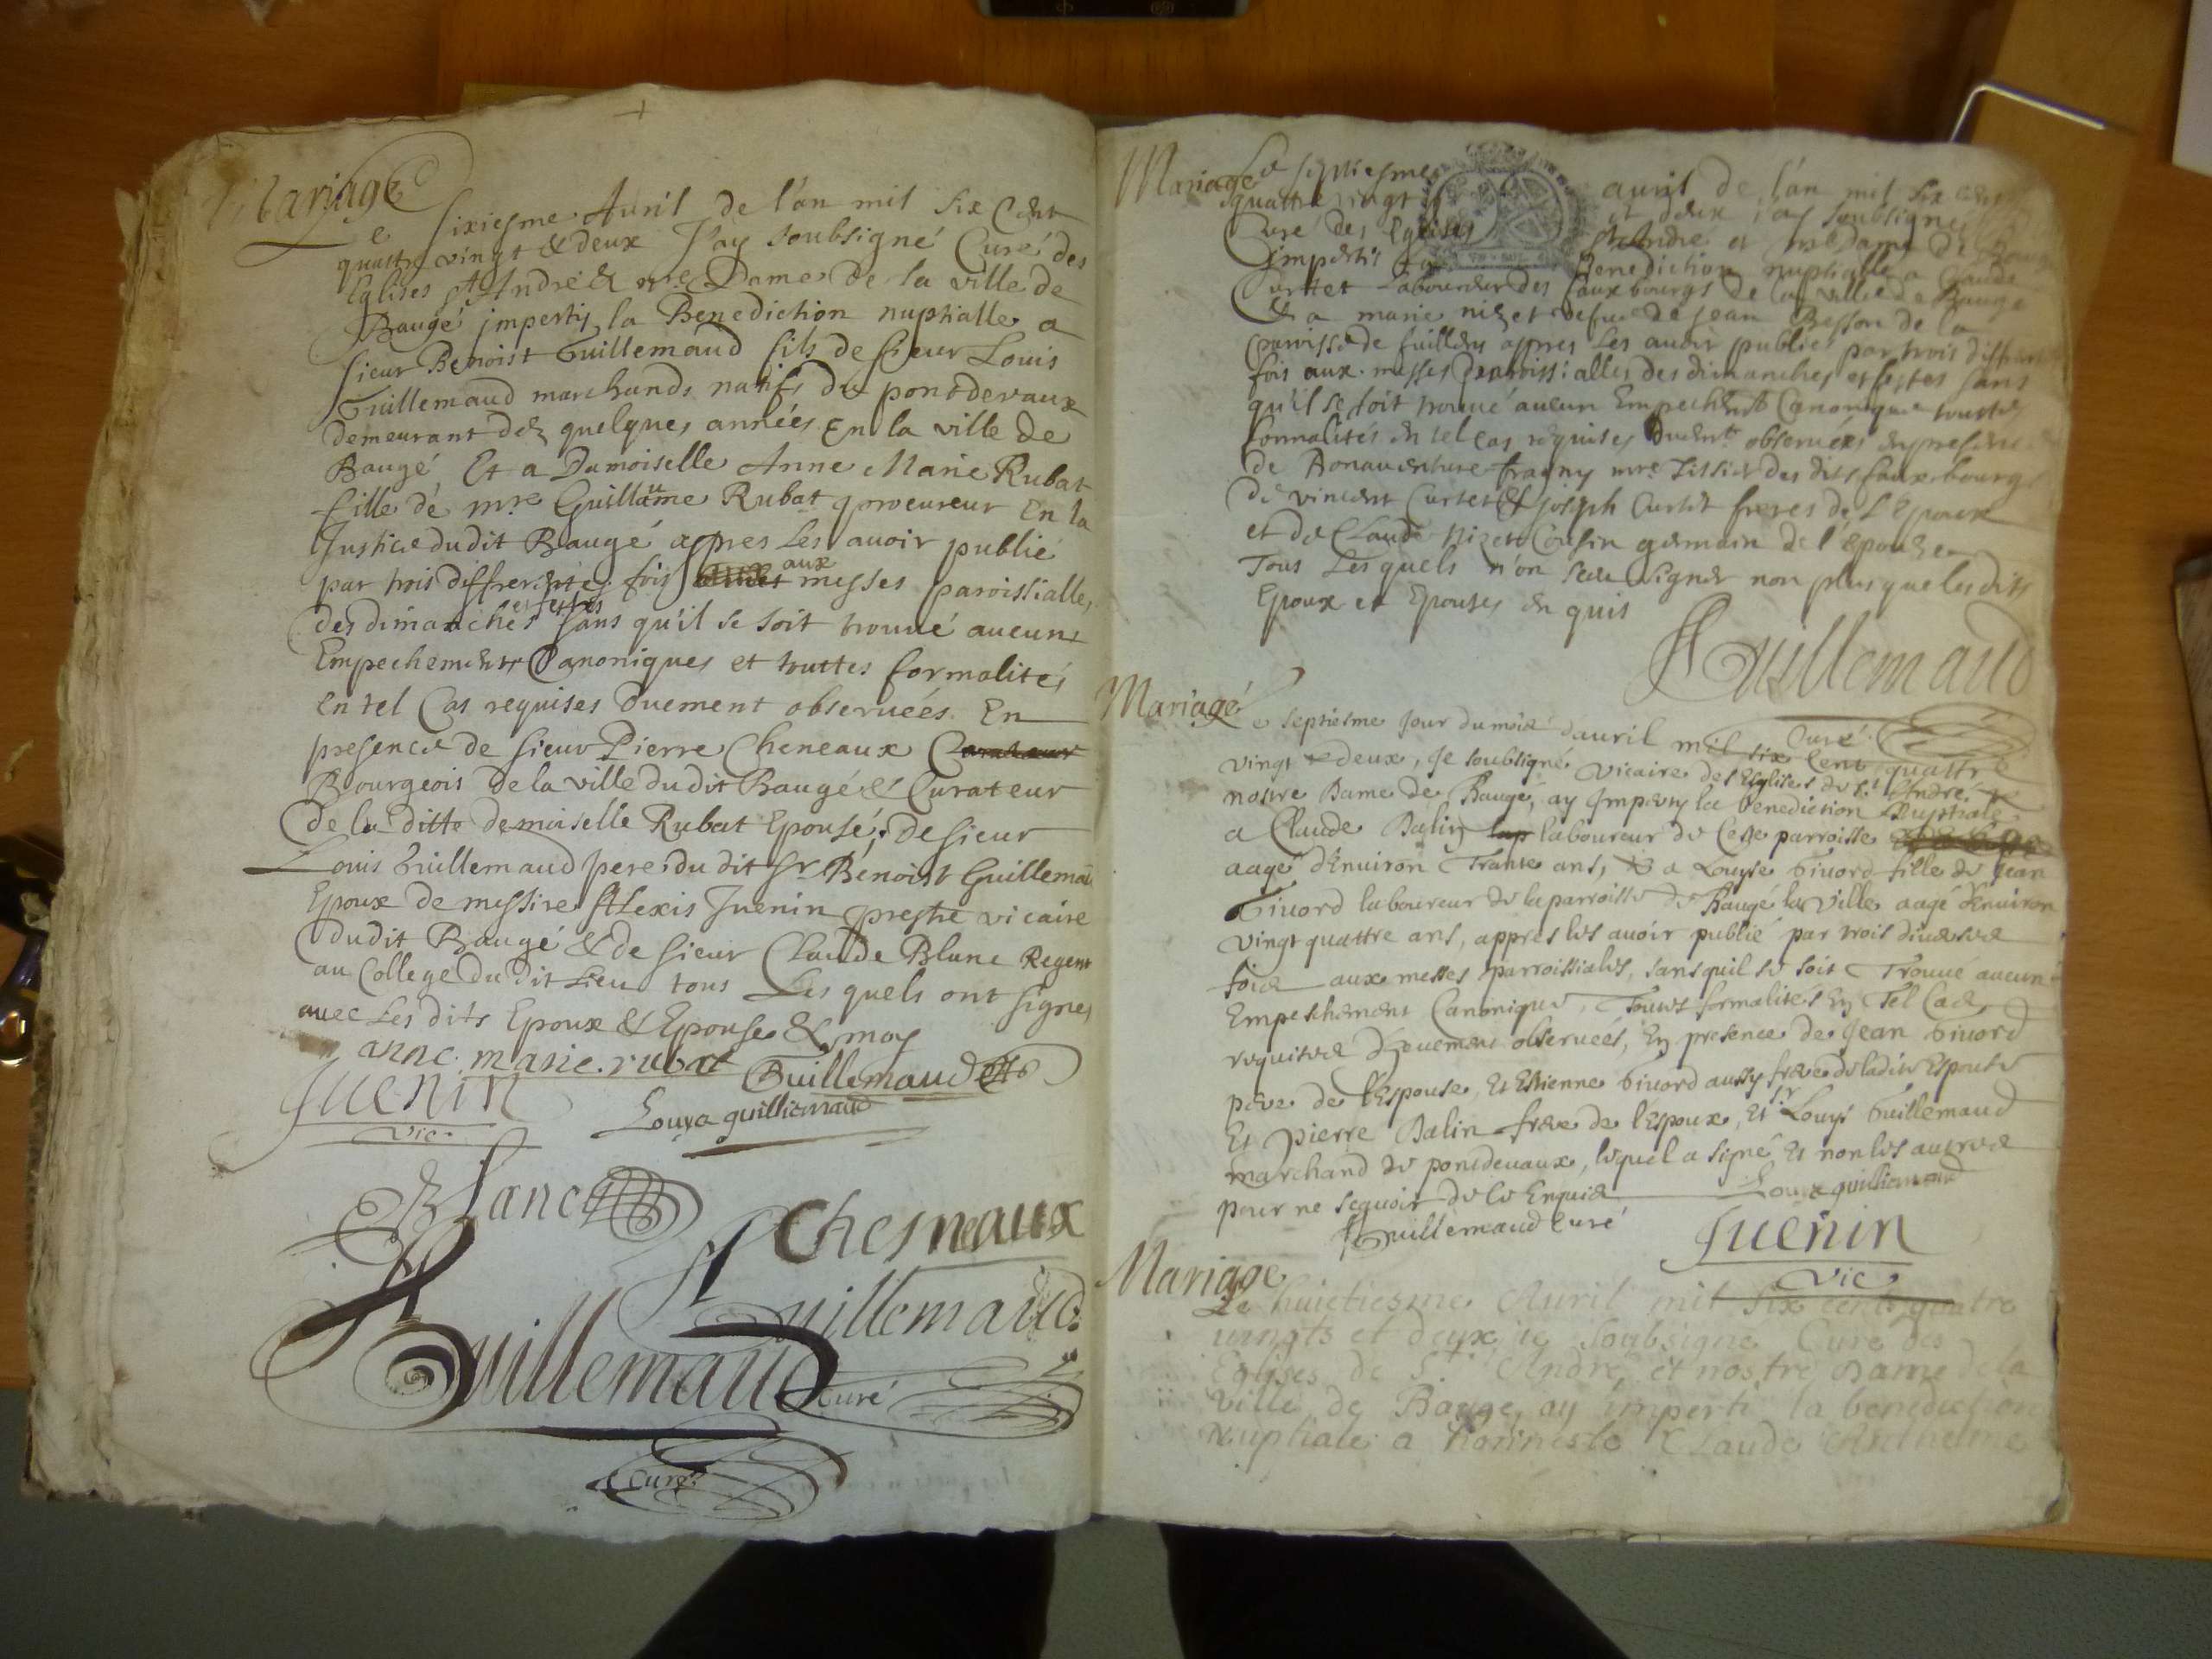 Mariage
Le sixiesme Auril de l'an mil six Cent
quattre vingt & deux J'ay soubsigné Curé des
Eglises St André & nre Dame de la ville de
Baugé imperty la Benediction nuptialle a
sieur Benoist Guillemaud fils de sieur Louis
Guillemaud marchands natifs du pontdevaux
demeurant dez quelques années En la ville de
Baugé, Et a Damoiselle Anne Marie Rubat
fille de mre Guillaume Rubat procureur En la
Justice dudit Baugé appres Les auoir publié
par trois differentes fois aux messes paroissialles
des dimanches et festes sans qu'il se soit trouué aucuns
Empechements Canoniques et touttes formalités
en tel Cas requises Duement obseruées. En
presence de sieur Pierre Cheneaux
Bourgeois de la ville dudit Baugé & Curateur
de la ditte demoiselle Rubat Epouse, de sieur
Louis Guillemaud pere du dit Sr Benoist Guillemau
Epoux de messire Alexis Juenin prestre vicaire
dudit Baugé & de sieur Claude Blanc Regent
au College dudit Lieu tous Les quels ont signes
auec Les dits Epoux & Epouse & moy
anne. marie. rubat Guillemaud
Juenin
vic.
Louys guilliemaud
Blanc
Chesneaux
Guillemaud
Curé
Guillemaud
Curé
Mariage
Le septiesme auril de l'an mil six cent
quattre vingt et deux j'ay soubsigné
Curé des Eglises St Andre et nre Dame de Baugé
imperti la Benediction nuptialle a Claude
Curtet Laboureur des fauxbourgs de la ville de Baugé
& a marie nizet vefue de jean Besson de la
paroisse de appres les auoir publiés par trois differentes
fois aux messes paroissialles des dimanches et festes sans
qu'il se soit trouué aucun Empechemt Canonique touttes
formalités en tel cas requises Duemt obseruées en presence
de Bonauenture fragny mre Tissier des dits fauxbourgs
de vincent Curtet & joseph Curtet freres de l'Epoux
et de Claude Nizet Cousin germain de l'epouse
Tous Les quels n'on sceu signer non plus que les dits
Epoux et Epouses en quis
Guillemaud
Curé
Mariage
Le septiesme jour du mois dauril mil six Cent quattre
vingt & deux, je soubsigné vicaire des Esglises de St Andre &
nostre Dame de Baugé, ay jmperty la benediction Nuptiale
a Claude Balin laboureur de Cette parroisse
aagé d'Enuiron Trante ans, & a Louyse Giuord fille de Jean
Giuord laboureur de la parroisse de Baugé la ville aagé d'enuiron
vingt quattre ans, appres les auoir publié par trois diuerses
fois aux messes parroissiales, sans quil se soit Trouué aucun
Empeschement Canonique, Toutes formalités En Tel Cas
requises deuement obseruées, En presence de Jean Giuord
pere de l'Espouse, Et Estienne Giuord aussy frere de ladite Espouse
Et pierre Balin frere de l'Espoux, Et Sr Louys Guillemaud
marchand de pontdeuaux, lequel a signé Et non les autres
pour ne sçauoir de ce Enquis
Louys guilliemaud
Guillemaud Curé
Juenin
Vic.
Mariage
Le huictiesme Auril mil six cents quatre
uingts et deux ie soybsigne Cure des
Eglises de St Andre et nostre Dame de la
Ville de Bauge, ay imperti la benediction
Nuptiale a honneste Claude Anthelme